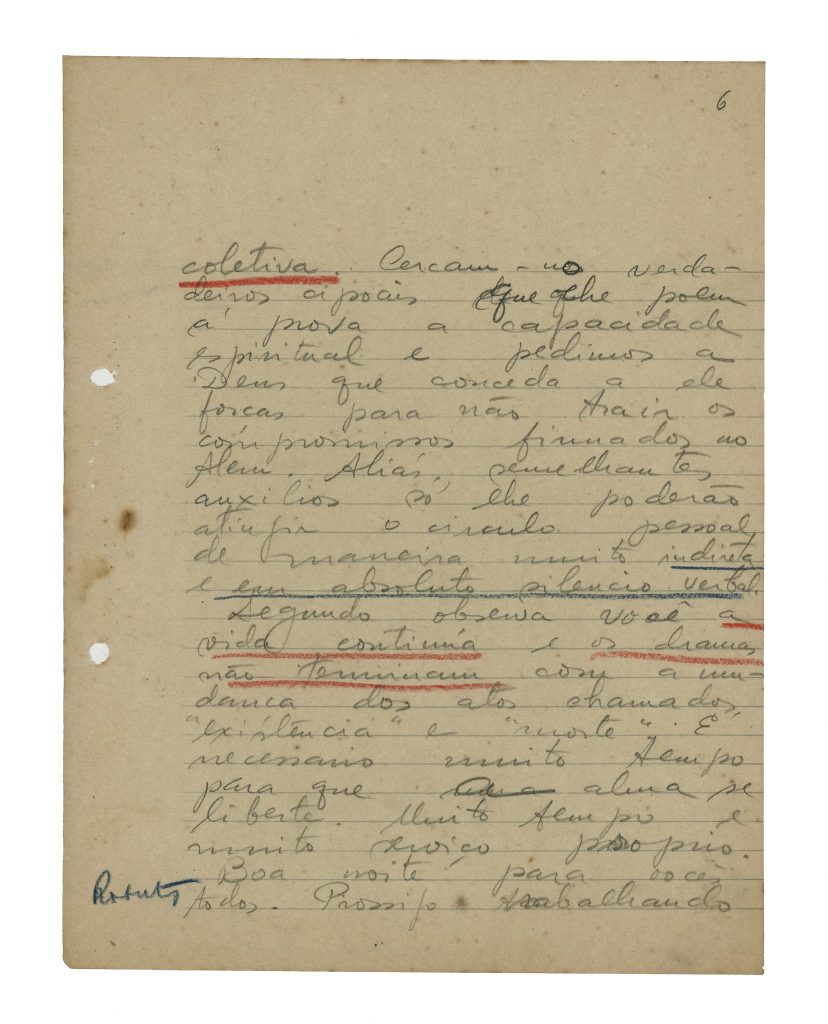 6
coletiva. Cercam-no verda-
deiros cipoais que lhe poem
á prova a capacidade
espiritual e pedimos a
Deus que conceda a ele
forcas para não trair os
compromissos firmados no
Alem. Aliás, semelhantes
auxilios só lhe poderão
atingir o circulo pessoal,
de maneira muito indireta
e em absoluto silencio verbal.
Segundo observa você a
vida continúa e os dramas
não terminam com a mu-
danca dos atos chamados,
"existência" e "morte". E
necessario muito tempo
para que alma se
liberte. Muito tempo e
muito serviço proprio.
Boa noite, para vocês
todos. Prossigo trabalhando